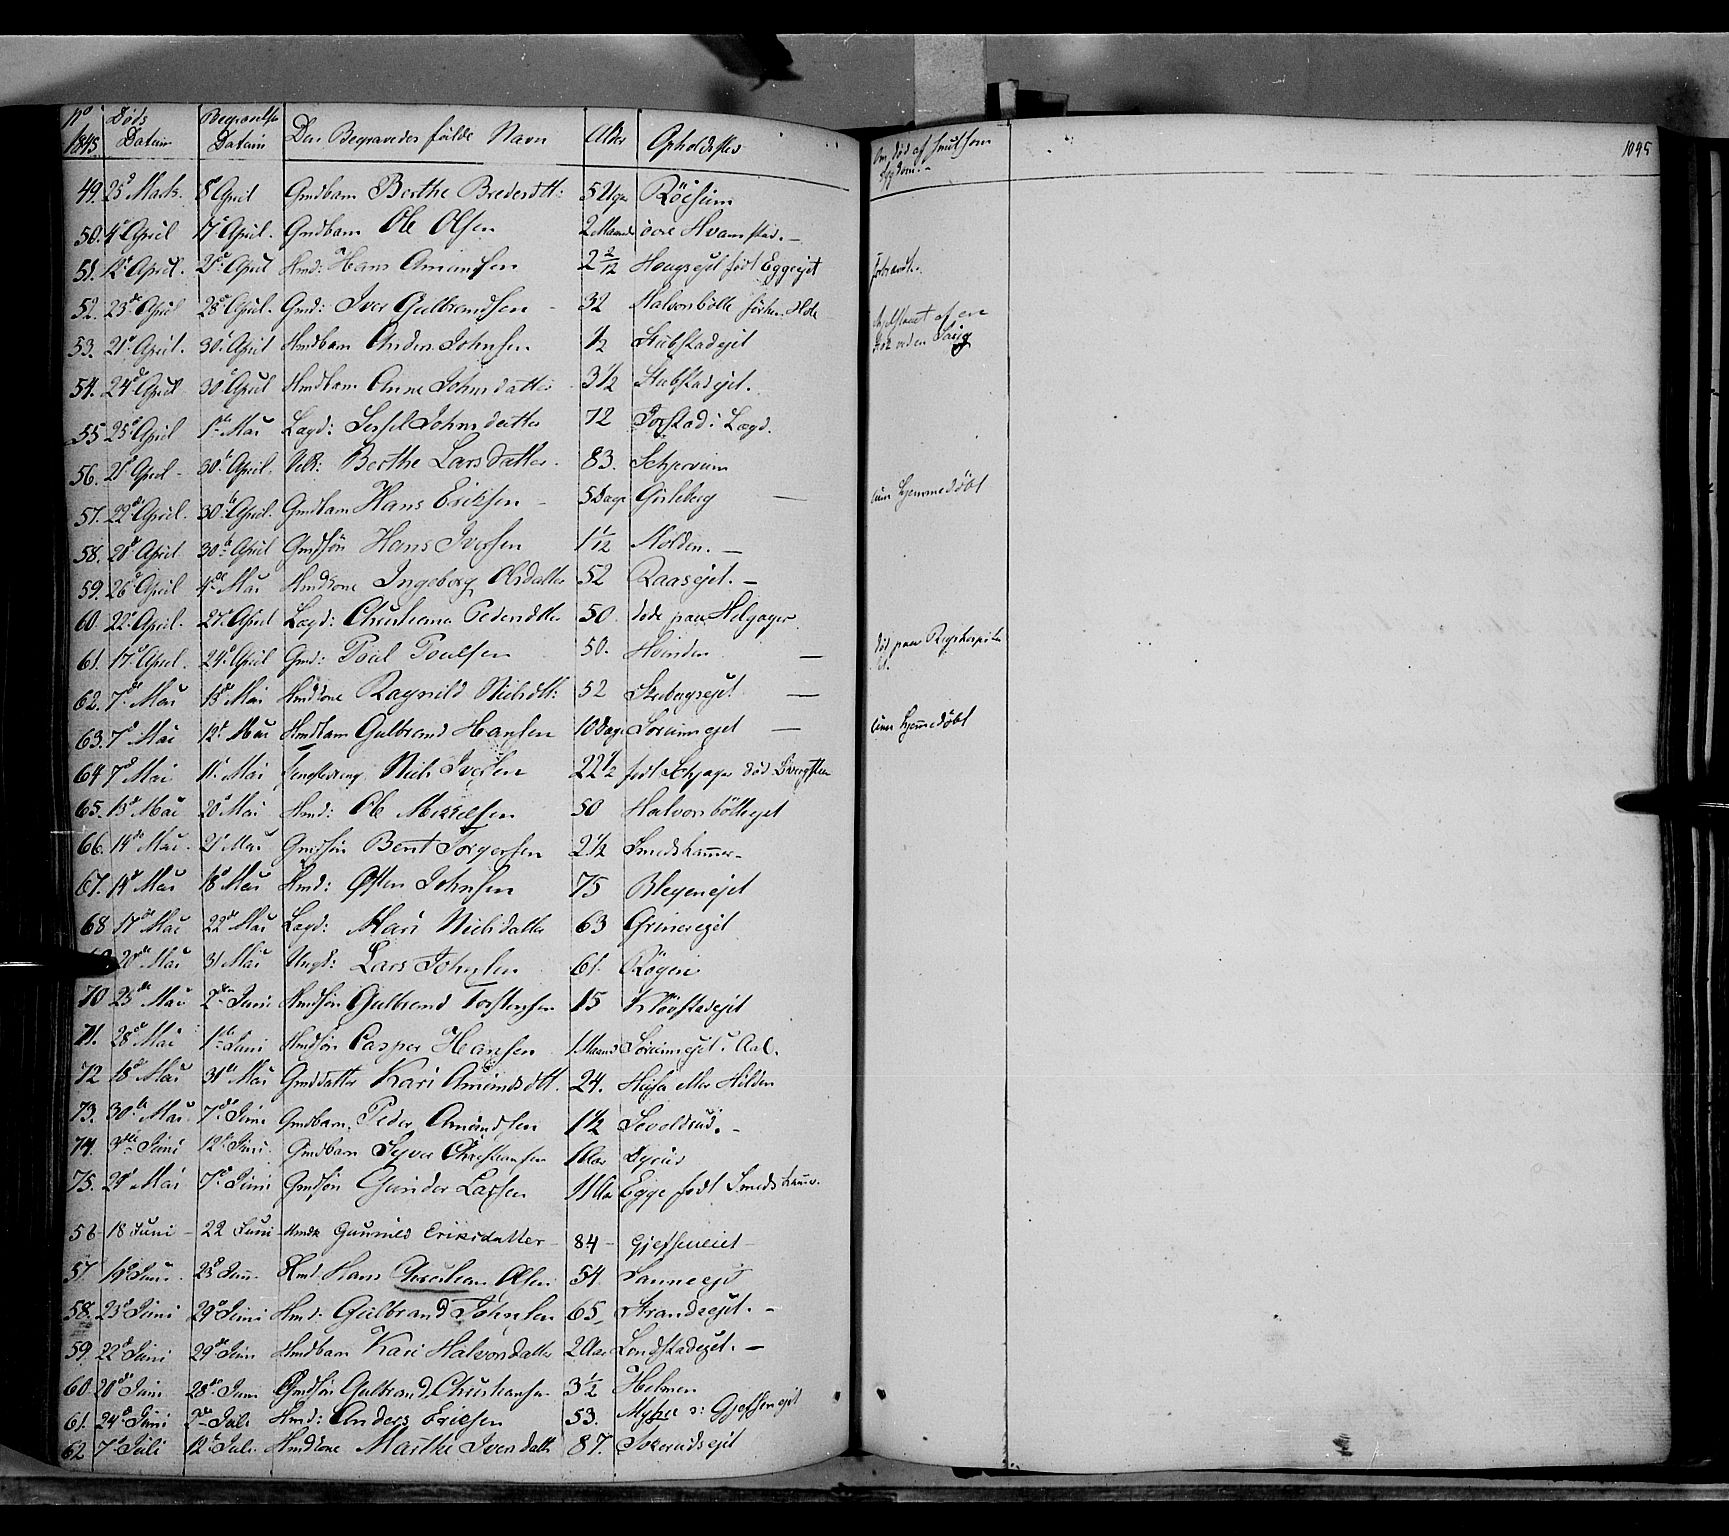 No 1845. Døds Datum Begravelse Datum Den Begravedes fulde Navn Alder Opholdssted Om død af smitsom Sygdom.- 1845
49. 25d Marts. 8d April Gmdbarn Berthe Bredesdtt: 5 Uger Röisum
50. 4d April 17d April. Gmdbarn Ole Olsen 2 Maaned övre Hvamstad. —
51. 12d April. 21d April Hmd: Hans Amundsen 2 2/12 Haugsejet født Eggeejet
52. 23de April 28d April. Gmd: Iver Gulbrandsen - 32 Halvorsbölle
53. 21d April. 30d April Hmdbarn Anders Johnsen 1/2 Stubstadejet
54. 24de April 30d April Hmdbarn Anne Johnsdatter 3 1/2 Stubstadejet.
55 25d April 1ste Mai Lægd: Sessel Johnsdatter 72 Jorstad i Lægd.
56. 21d April - 30te April. Berthe Larsdatter. 83. Schjervum
57. 22de April. 30te April. Gmdbarn Hans Eriksen - 5 Dage Girleberg — hjemmedöbt
58. 20d April 30te April Gmdsön Hans Iversen 1 1/12 Molden. —
59. 26d April 4de Mai Hmdkone Ingeborg Olsdatter 52 Raasejet. —
60. 22d April. 27d April Lægd: Christiana Pedersdtter 50. døde paa Helgager
61. 17d April. 24d April Gmd: Poul Poulsen 50. Hvinden — död paa Rigshospitalet.
62. 7de Mai 13de Mai Hmdkone Ragnild Nielsdtt: 52 Skiebergsejet —
63. 7d Mai 12te Mai Hmdbarn Gulbrand Hansen 10 Dage Soriumejet — hjemmedöbt
64 7d Mai 11te Mai Niels Iversen 22 1/2 født Schjager död
65. 13d Mai 20d Mai Hmd: Ole Mikkelsen 50 Halvorsbölleejet
66. 14de Mai. 21d Mai Gmdsön Bent Torgersen 2 1/2 Smedshammer-
67. 14d Mai 18d Mai Hmd: Østen Johnsen 75 Blegenejet
68 17de Mai 22de Mai Lægd: Mari Nielsdatter 63 Grinerejet
20de Mai 31 Mai Ungk: Lars Johnsen 61. Rögne
70 23de Mai 2den Juni Hmdsön Gulbrand Torstensen 15 Klövstadejet
71. 28de Mai 1ste Juni Hmdsön Casper Hansen 1 Maaned Soriumejet i Aal.
72 18d Mai 31te Mai Gmddatter Kari Amundsdtt. 24. Hilden
73. 30te Mai. 7de Juni Gmdbarn. Peder Amundsen 1 1/2 Sevoldrud. -
74. 3die Juni 12te Juni. Gmdbarn Syver Christiansen 1 Aar
75. 29d Mai 7de Juni Gmdsön Gunder Larsen 11 Aar Egge født Smedshamr.
56 18 Juni - 22 Juni - Hmdk Gunnild Eriksdatter - 84 - Gjefseneiet
57. 19d Juni. 23d Juni Hmd. Hans Christian Olsen 54. Sanneejet
58. 23d Juni 29d Juni Hmd: Gulbrand Johnsen 65 Strandsejet. -
59. 22de Juni 29de Juni Hmdbarn Kari Halvorsdatter 2 Aar Londstadejet. —
60. 20de Juni 28de Juni Gmdsön Gulbrand Christiansen 3 1/2 Helmen
61. 24d Juni 3die Juli Hmd: Anders Ericsen 53. Myhre i Gjefsenejet
62 7d Juli 12te Juli Hmdkone Marthe Iversdatter 87. Sokerudsejet